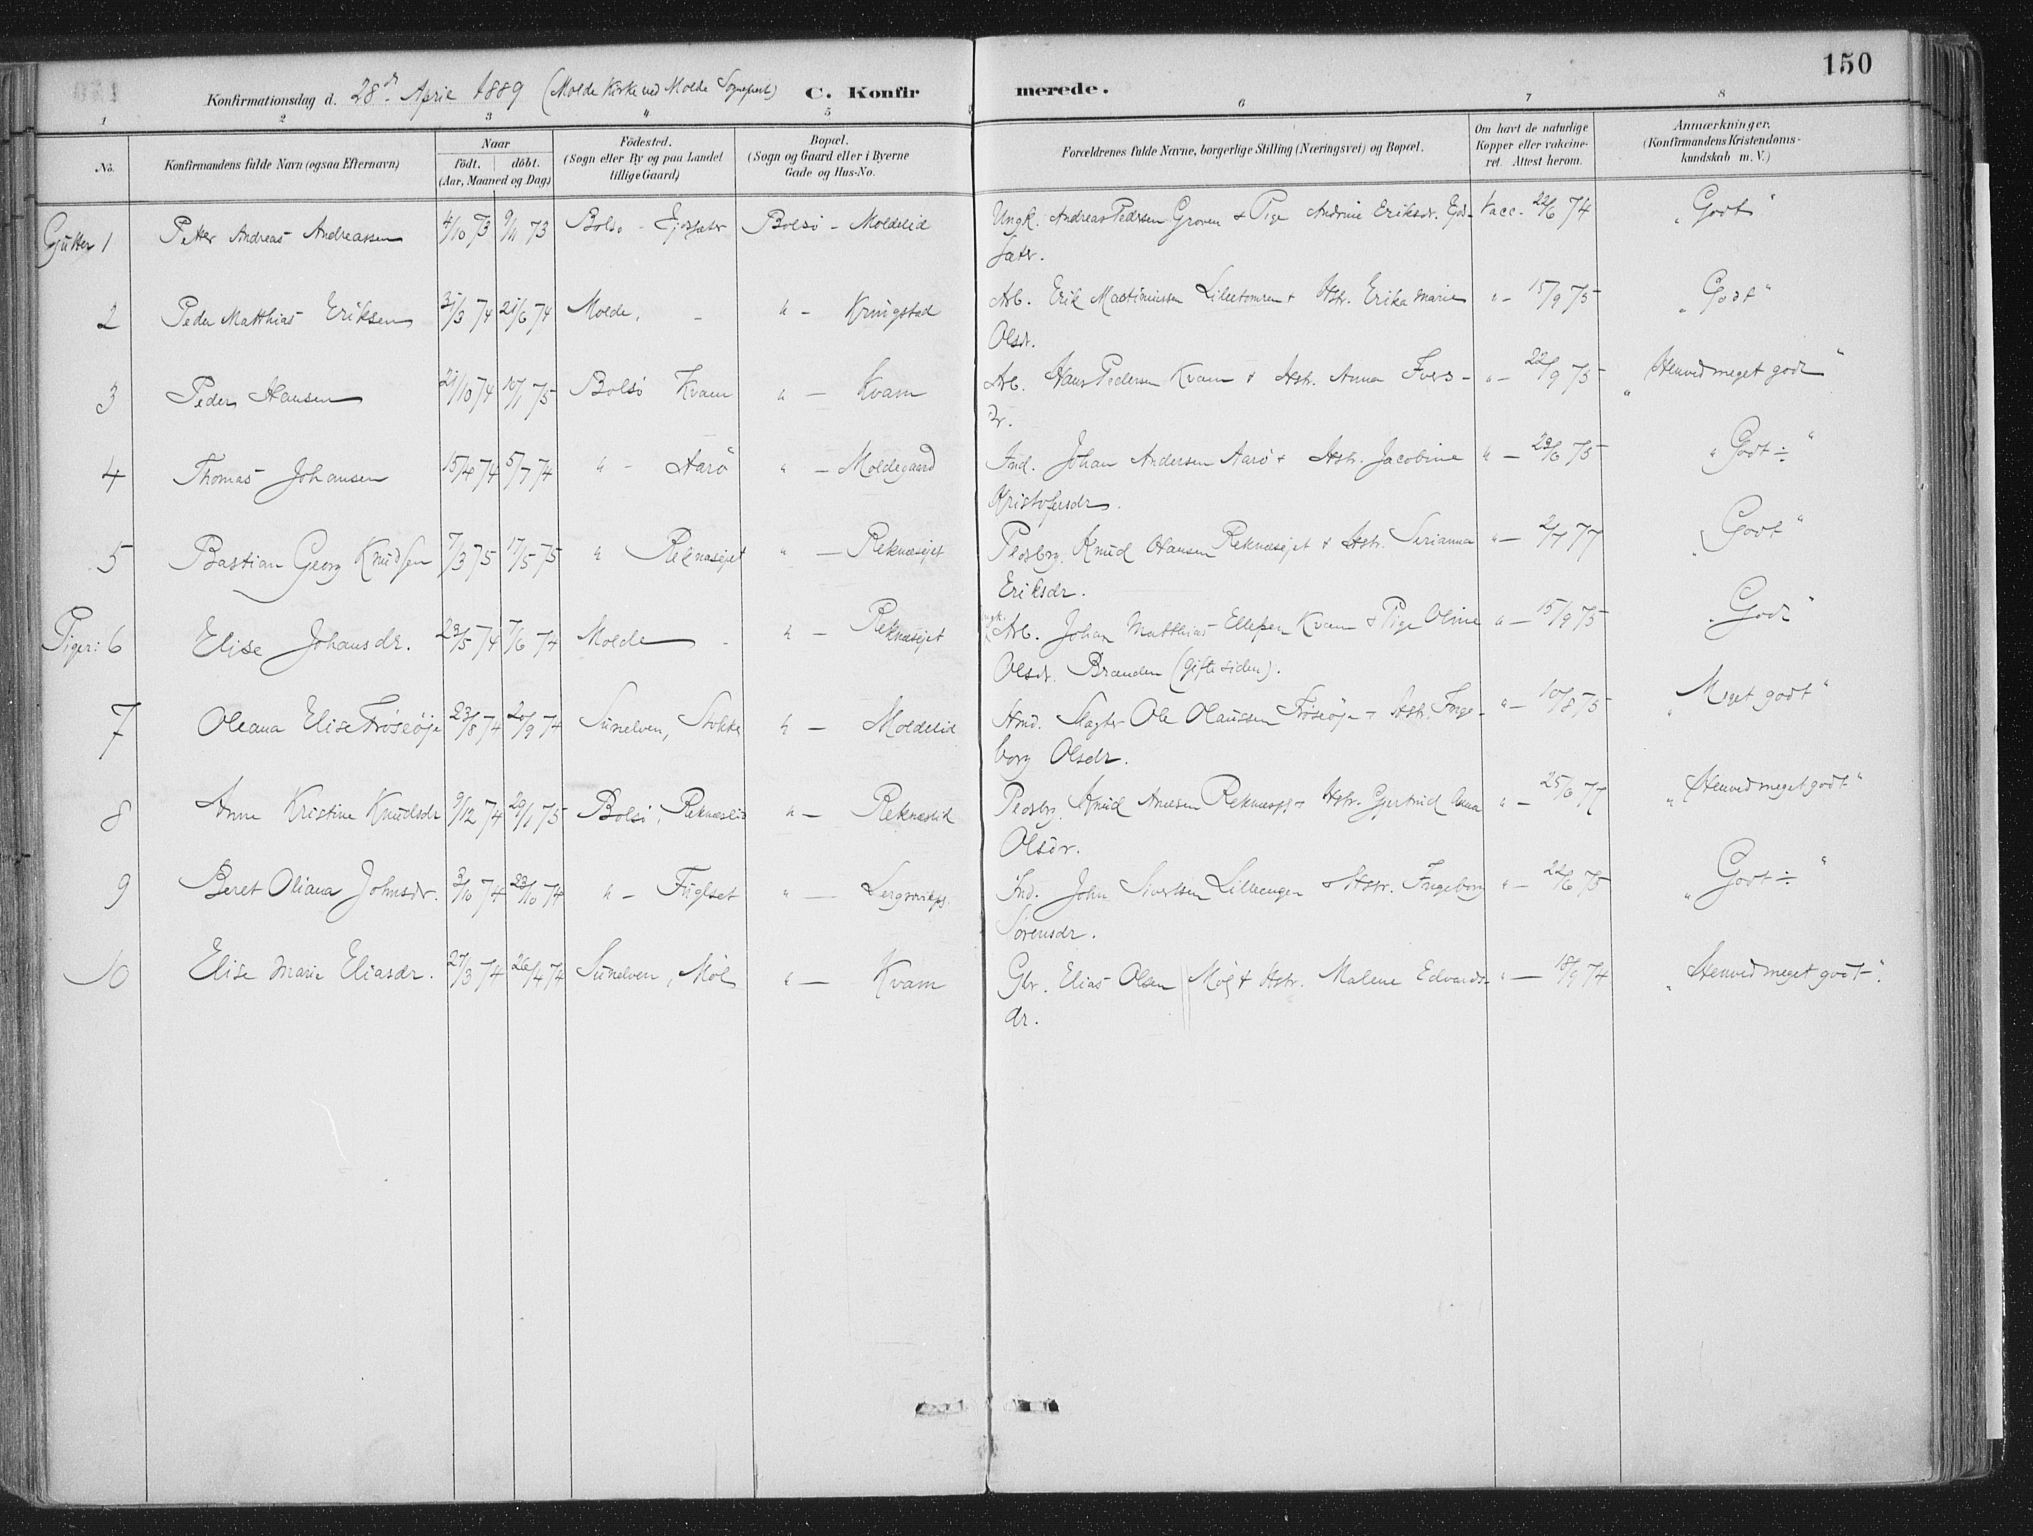 150
Konfirmationsdag d. 28de April 1889 (Molde Kirke ved Molde Sognepræst) C. Konfirmerede.
1 2 3 4 5 6 7 8
No. Konfirmandens fulde Navn (ogsaa Efternavn) Naar født. døbt. (Aar, Maaned og Dag) Födested. (Sogn eller By og paa Landet tillige Gaard) Bopæl. (Sogn og Gaard eller i Byerne Gade og Hus-No. Forældrenes fulde Navne, borgerlige Stilling (Næringsvei) og Bopæl. Om havt de naturlige Kopper eller vakcineret. Attest herom. Anmærkninger. (Konfirmandens Kristendomskundskab m. V.)
Gutter 1 Petter Andreas Andreassen 4/10 73 9/11 73 Bolsø - Bolsø - Moldelid Ungk. Andreas Pedersen Groven & Pige Andrine Eriksdr. Vacc. 22/6 74 "Godt"
sæter.
2 Peder Matthias Eriksen 31/3 74 21/6 74 Molde, - " - Kringstad Arb. Erik Martiniussen & Hstr. Erika Marie " - 15/9 75 "Godt"
Olsdr.
3 Peder Hansen 21/10 74 10/1 75 Bolsø Kvam " - Kvam Arb. Hans Pedersen Kvam & Hstr. Anna Ivers- " - 22/9 75 "Henved meget godt"
dr.
4 Thomas Johansen 15/4 74 5/7 74 " - Aarö " - Moldegaard Ind. Johan Andersen Aarö & Hstr. Jacobine " - 23/6 75 "Godt ÷"
Kristofersdr.
5 Bastian Georg Knudsen 7/3 75 17/5 75 " Reknæsøjet " - Reknæsøjet Pladsbrg. Knud Hansen Reknæsøjet & Hstr. Serianna " - 2/7 77 "Godt"
Eriksdr.
Piger: 6 Elise Johansdr. 23/5 74 7/6 74 Molde - " - Reknæsøjet Ungk. Arb. Johan Matthias Ellefsen Kvam & Pige Oline " - 15/9 75 "Godt"
Olsdr. Branden (gifte siden).
7 Oleana Elise Frøseøje 23/8 74 20/9 74 Sunelven, Stokke " - Moldelid Hmd. Slagter Ole Olaussen Frøseøje & Hstr. Inge- " - 10/8 75 "Meget godt"
borg Olsdr.
8 Anne Kristine Knudsdr 9/12 74 29/1 75 Bolsø, Reknæslid " - Reknæslid Pladsbrg. Knud & Hstr. Gjertrud Anna " - 25/6 77 "Henved meget godt"
Olsdr.
9 Beret Oliana Johnsdr. 3/10 74 23/10 74 " - Fuglset " - Ind. John Sivertsen Lilleengen & Hstr. Ingeborg " - 22/6 75 "Godt ÷"
Sörensdr.
10 Elise Marie Eliasdr. 27/3 74 26/4 74 Sunelven, Möl " - Kvam Gbr. Elias Olsen Möl & Hstr. Malene Edvards- " - 18/9 74 "Henved meget godt".
dr.